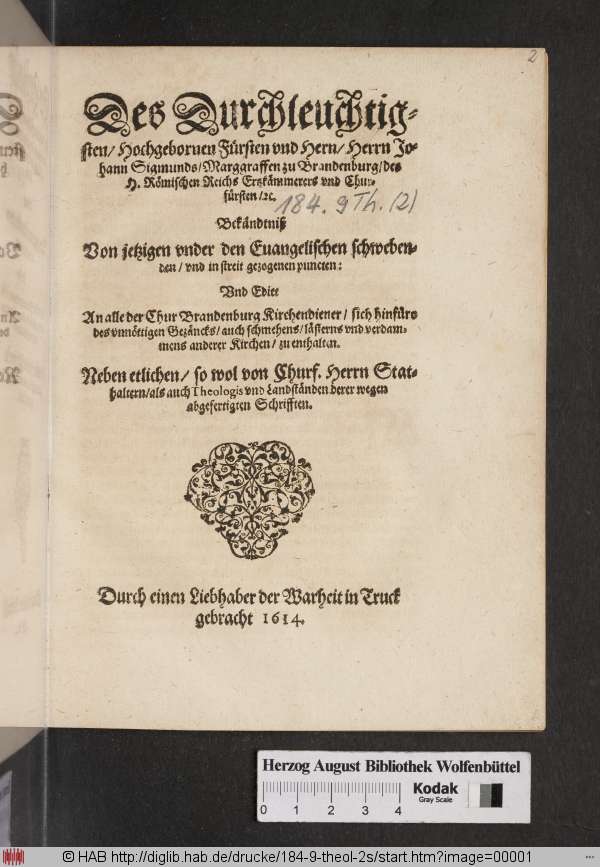 2
Des Durchleuchtig-
sten/ Hochgebornen Fürsten vnd Hern/ Herrn Jo-
hann Sigmunds/ Marggraffen zu Brandenburg/ des
H. Römischen Reichs Ertzkämmerers vnd Chur-
fürsten/ ꝛc.
184. 9 Th. (2)
Bekändtniß
Von jetzigen vnder den Euangelischen schweben-
den/ vnd in streit gezogenen puncten:
Vnd Edict
An alle der Chur Brandenburg Kirchendiener/ sich hinfüro
des vnnöttigen Gezäncks/ auch schmehens/ lästerns vnd verdam-
mens anderer Kirchen/ zu enthalten.
Neben etlichen/ so wol von Churf. Herrn Stat-
haltern/ als auch Theologis vnd Landständen derer wegen
abgefertigten Schrifften.
Durch einen Liebhaber der Warheit in Truck
gebracht 1614.
Herzog August Bibliothek Wolfenbüttel
0 1 2 3 4
Kodak
Gray Scale
© HAB http://diglib.hab.de/drucke/184-9-theol-2s/start.htm?image=00001